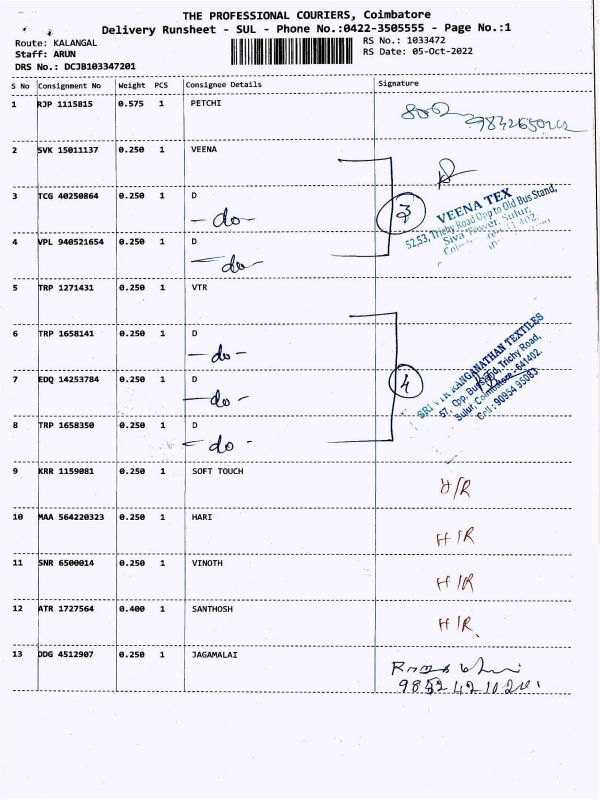 THE PROFESSIONAL COURIERS, Coimbatore
Delivery Runsheet - SUL - Phone No.:0422-3505555 - Page No.:1
Route: KALANGAL
RS No.: 1033472
Staff: ARUN
RS Date: 05-Oct-2022
DRS No.: DCJB103347201
S No Consignment No Weight PCS Consignee Details Signature
1 RJP 1115815 0.575 1 PETCHI
2 SVK 15011137 0.250 1 VEENA
3 TCG 40250864 0.250 1 D
- do -
3
VEENA TEX
52,53, Trichy Road Opp to Old Bus Stand,
Siva Tower, Sulur,
4 VPL 940521654 0.250 1 D
- do -
5 TRP 1271431 0.250 1 VTR
6 TRP 1658141 0.250 1 D
- do -
7 EDQ 14253784 0.250 1 D
- do -
4
SRI VTR RANGANATHAN TEXTILES
57, Opp. Bus Stand, Trichy Road,
Sulur, Coimbatore - 641402.
Cell : 90954 95083
8 TRP 1658350 0.250 1 D
- do -
9 KRR 1159081 0.250 1 SOFT TOUCH
H/R
10 MAA 564220323 0.250 1 HARI
H/R
11 SNR 6500014 0.250 1 VINOTH
H/R
12 ATR 1727564 0.400 1 SANTHOSH
H/R.
13 DDG 4512907 0.250 1 JAGAMALAI